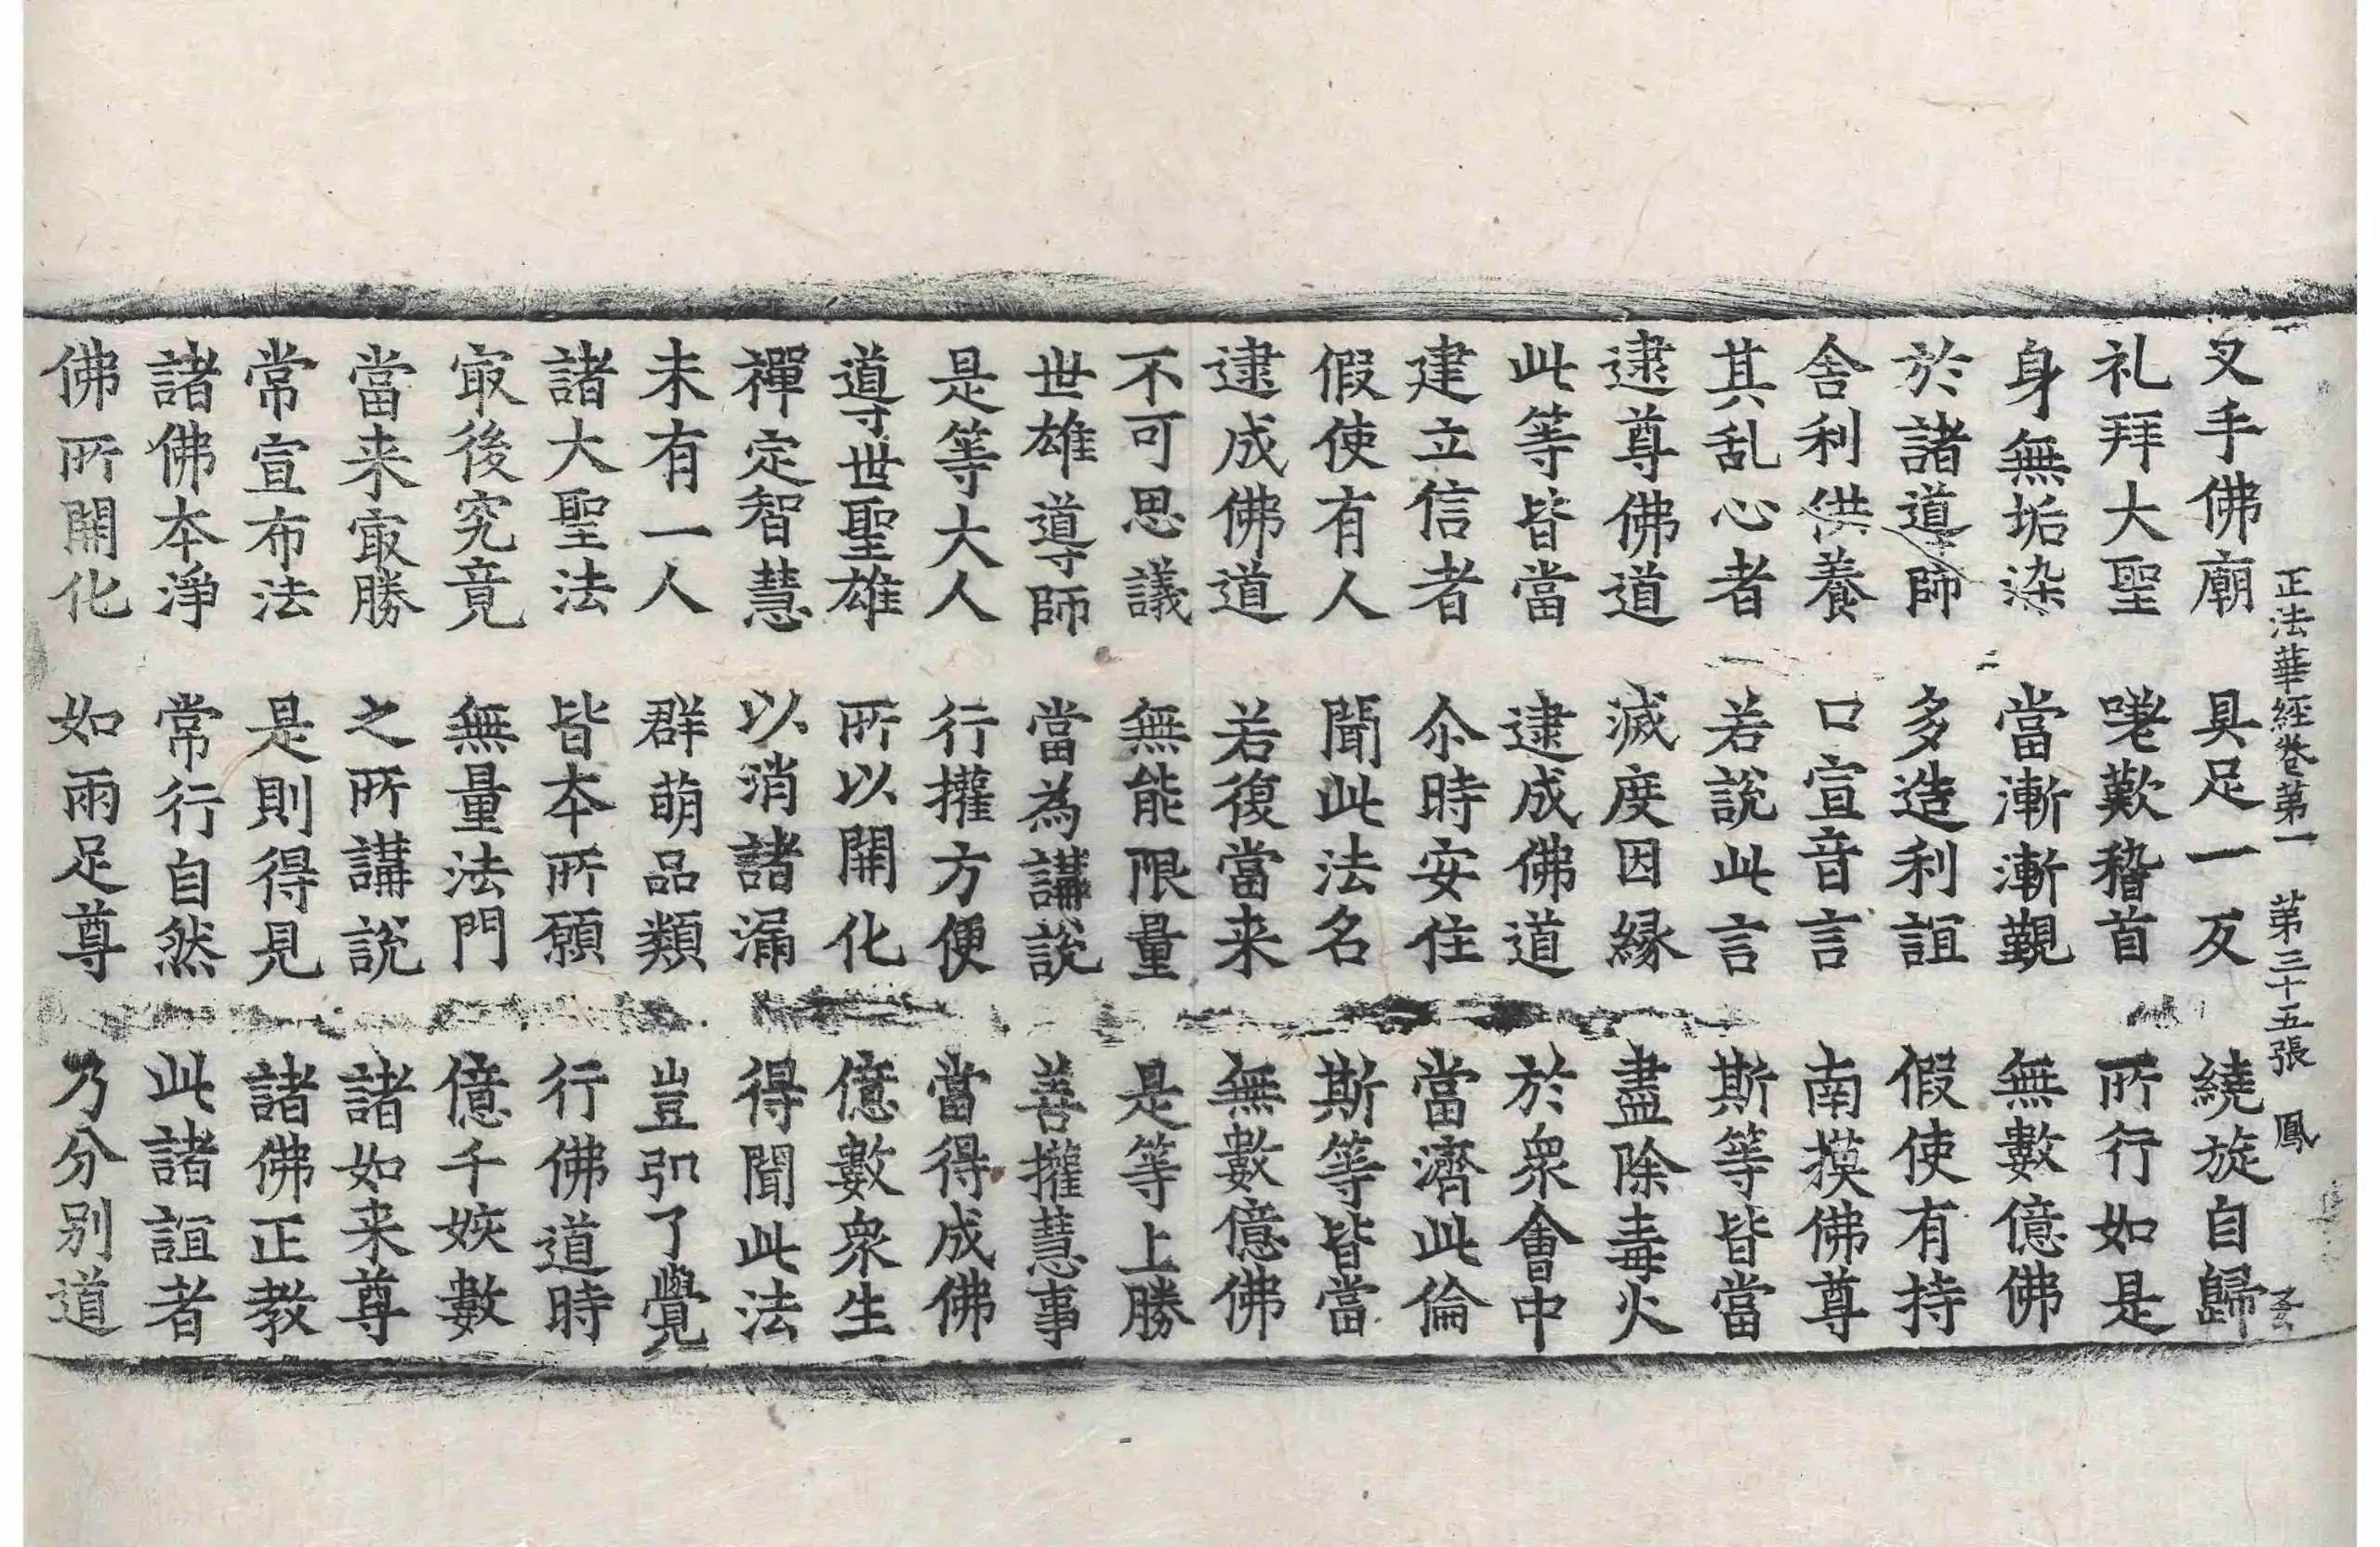 正法華經卷第一 第三十五張 鳳
叉手佛廟 具足一反 繞旋自歸
礼拜大聖 嗟歎稽首 所行如是
身無垢染 當漸漸覲 無數億佛
於諸道師 多造利誼 假使有持
舍利供養 口宣音言 南摸佛尊
其乱心者 若說此言 斯等皆當
逮尊佛道 滅度因緣 盡除毒火
此等皆當 逮成佛道 於衆會中
建立信者 尒時安住 當濟此倫
假使有人 聞此法名 斯等皆當
逮成佛道 若復當来 無數億佛
不可思議 無能限量 是等上勝
世雄導師 當為講說 善權慧事
是等大人 行權方便 當得成佛
導世聖雄 所以開化 億數衆生
禪定智慧 以消諸漏 得聞此法
未有一人 群萌品類 豈弘了覺
諸大聖法 皆本所願 行佛道時
㝡後究竟 無量法門 億千姟數
當来㝡勝 之所講說 諸如来尊
常宣布法 是則得見 諸佛正教
諸佛本淨 常行自然 此諸誼者
佛所開化 如兩足尊 乃分别道